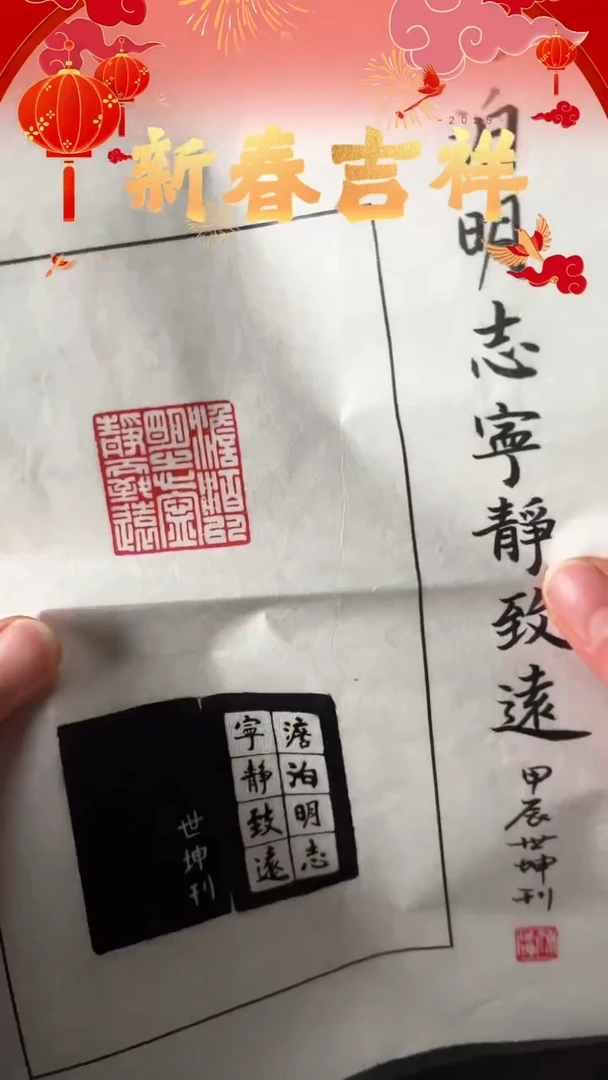 新春吉祥
-2025-
泊明志寧靜致遠
甲辰世坤刊
澹泊明志寧靜致遠
澹泊明志
寧靜致遠
世坤刊